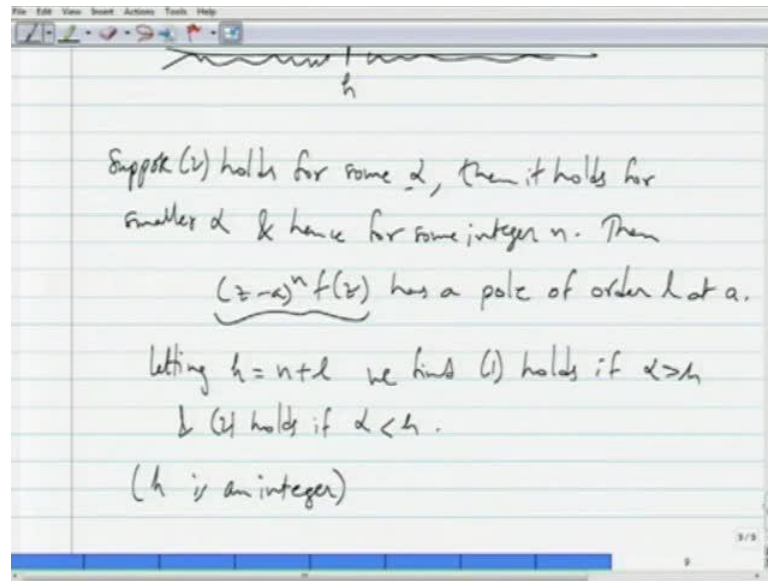 File Edit View Insert Actions Tools Help
h
Suppose (2) holds for some α, then it holds for
smaller α & hence for some integer n. Then
(z-a)ⁿ f(z) has a pole of order l at a.
letting h = n+l we find (1) holds if α>h
& (2) holds if α<h.
(h is an integer)
9/9
9